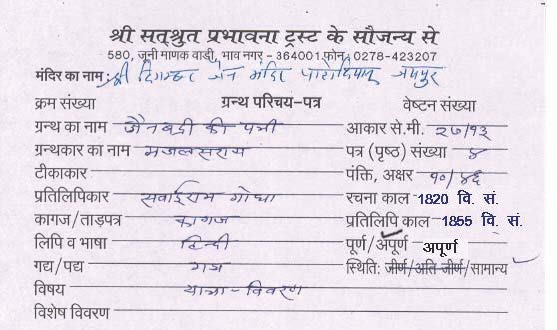 श्री सत्श्रुत प्रभावना ट्रस्ट के सौजन्य से
580, जुनी माणक वाडी, भाव नगर - 364001 फोन 0278-423207
मंदिर का नाम: श्री दिगम्बर जैन मंदिर पाटोदियान जयपुर
क्रम संख्या ग्रन्थ परिचय-पत्र वेष्टन संख्या
ग्रन्थ का नाम जैनबद्री की पत्री आकार से.मी. २७/१३
ग्रन्थकार का नाम मजलसराय पत्र (पृष्ठ) संख्या ४
टीकाकार पंक्ति, अक्षर १०/४६
प्रतिलिपिकार सवाईराम गोधा रचना काल 1820 वि. सं.
कागज/ताड़पत्र कागज प्रतिलिपि काल 1855 वि. सं.
लिपि व भाषा हिन्दी पूर्ण/अपूर्ण अपूर्ण
गद्य/पद्य गद्य स्थिति: जीर्ण/अति जीर्ण/सामान्य
विषय यात्रा-विवरण
विशेष विवरण